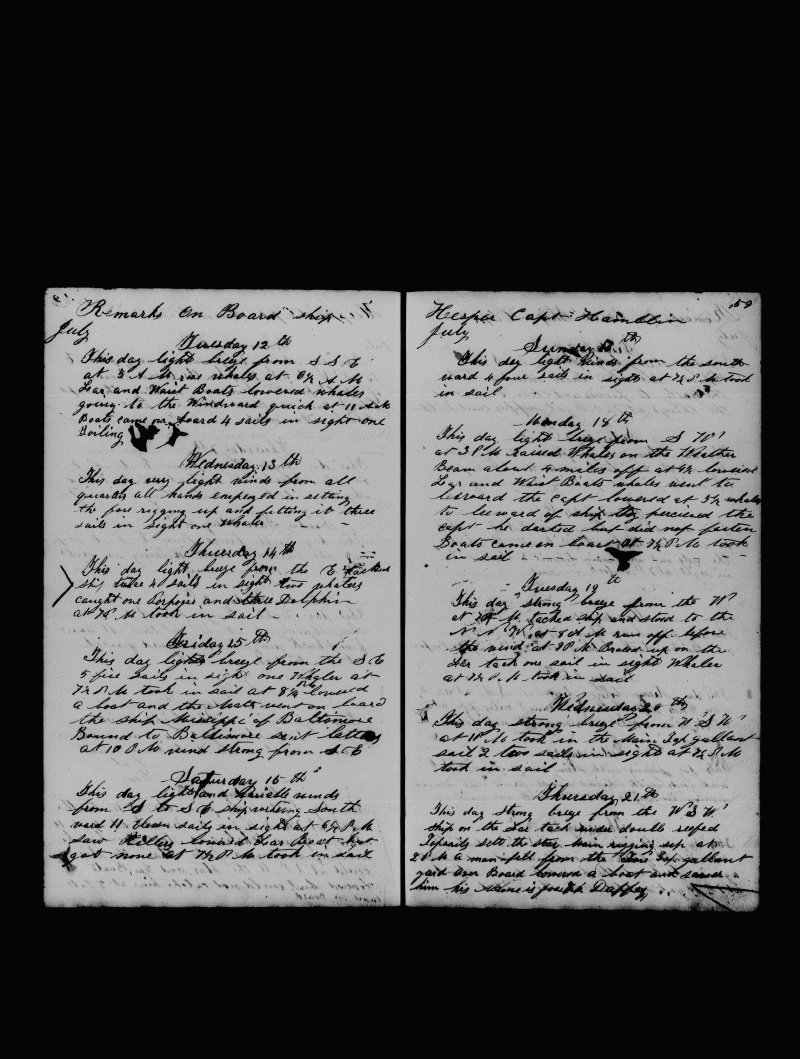 Remarks On Board ship
July
Tuesday 12th
This day light breze from S S E
at 5 A M saw whales at 6½ A M
Lar and Waist Boats lowered whales
going to the Windward quick at 11 A M
Boats came on board 4 sails in sight one
Boiling
Wednesday 13th
This day very light winds from all
quarters all hands employed in setting
the fore rigging up and fitting it three
sails in sight one whaler
Thursday 14th
This day light breze from the E tacked
ship twice 4 sails in sight two whalers
caught one Porpoise and three Dolphin
at 7½ P M took in sail
Friday 15th
This day light breze from the S E
5 five sails in sight one Whaler at
7½ P M took in sail at 8¼ lowered
a boat and the mate went on board
the ship Mississippi of Baltimore
Bound to Baltimore sent letters
at 10 P M wind strong from S E
Saturday 16th
This day light and variable winds
from S to S E ship working South
ward 11 eleven sails in sight at 6½ P M
saw lowered Lar Boat but
got none at 7½ P M took in sail
59
Hesper Capt Hamblin
July
Sunday 17th
This day light winds from the south
ward 4 four sails in sight at 7½ P M took
in sail
Monday 18th
This day light breze from S W
at 3 P M raised Whales on the Weather
Beam about 4 miles off at 4½ lowered
Lar and Waist Boats whales went to
leeward the Capt lowered at 5½ whales
to leeward of ship they percieved the
capt he darted but did not fasten
Boats came on board at 7½ P M took
in sail
Tuesday 19th
This day strong breze from the W
at P M tacked ship and stood to the
N N W at 8 A M run off before
the wind at 2 P M Braced up on the
Star tack one sail in sight Whaler
at 7½ P M took in sail
Wednesday 20th
This day strong breze from W S W
at 1 P M took in the Main Top gallant
sail 2 two sails in sight at 7½ P M
took in sail
Thursday 21th
This day strong breze from the W S W
ship on the Star tack under double reefed
Topsails sett the Star Main rigging up at
2 P M a man fell from the fore Top gallant
yard over Board lowered a boat and saved
him his name is Joseph Dappey